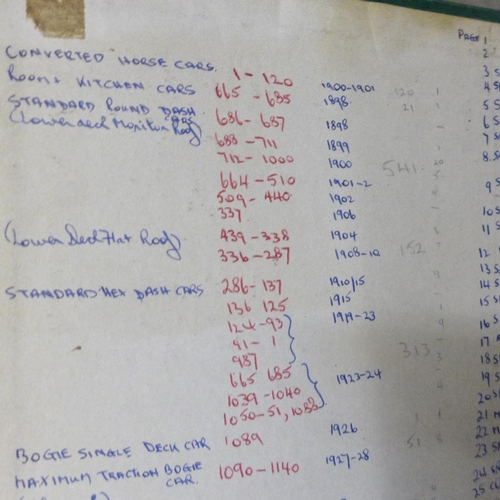 PAGE 1
2
CONVERTED HORSE CARS. 1 - 120 3 S
ROOM & KITCHEN CARS 665 - 685 1900-1901 120 1 4 S
STANDARD ROUND DASH CARS 686 - 687 1898 21 5 S
(Lower deck Monitor Roof) 1898 6 S
688 - 711 1899 7 S
712 - 1000 1900 541 20 8 S
664 - 510 1901-2 9 S
509 - 440 1902
337 1906 10 S
(Lower Deck Flat Roof) 439 - 338 1904 11 S
336 - 287 1908-10 152 12
13 S
STANDARD HEX DASH CARS 286 - 137 1910/15 14 S
136 125 1915 15 S
124 - 93 1919-23 16 S
91 - 1 313 17
987 18 S
665 685 1923-24 19 S
1039 - 1040 20 S
1050-51, 1088 21
BOGIE SINGLE DECK CAR 1089 1926 51 22
MAXIMUM TRACTION BOGIE CAR. 1090 - 1140 1927-28 23 S
24
25